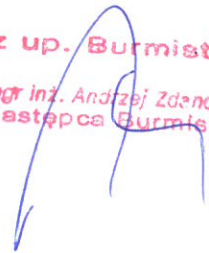 z up. Burmist
mgr inż. Andrzej Zdano
astępca Burmis